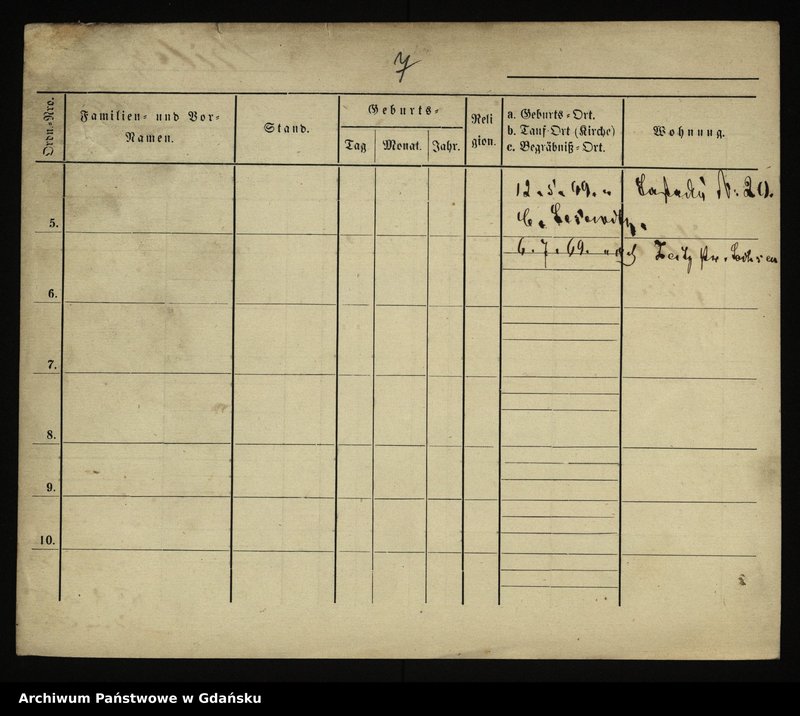 7
Ordn.=Nro.
Familien= und Vor=
Namen.
Stand.
Geburts=
Tag
Monat.
Jahr.
Reli
gion.
a. Geburts=Ort.
b. Tauf-Ort (Kirche)
c. Begräbniß=Ort.
Wohnung.
12. 5. 69.
N: 20.
5.
b.
6. 7. 69.
Zeitz Pr. Sachsen
6.
7.
8.
9.
10.
Archiwum Państwowe w Gdańsku